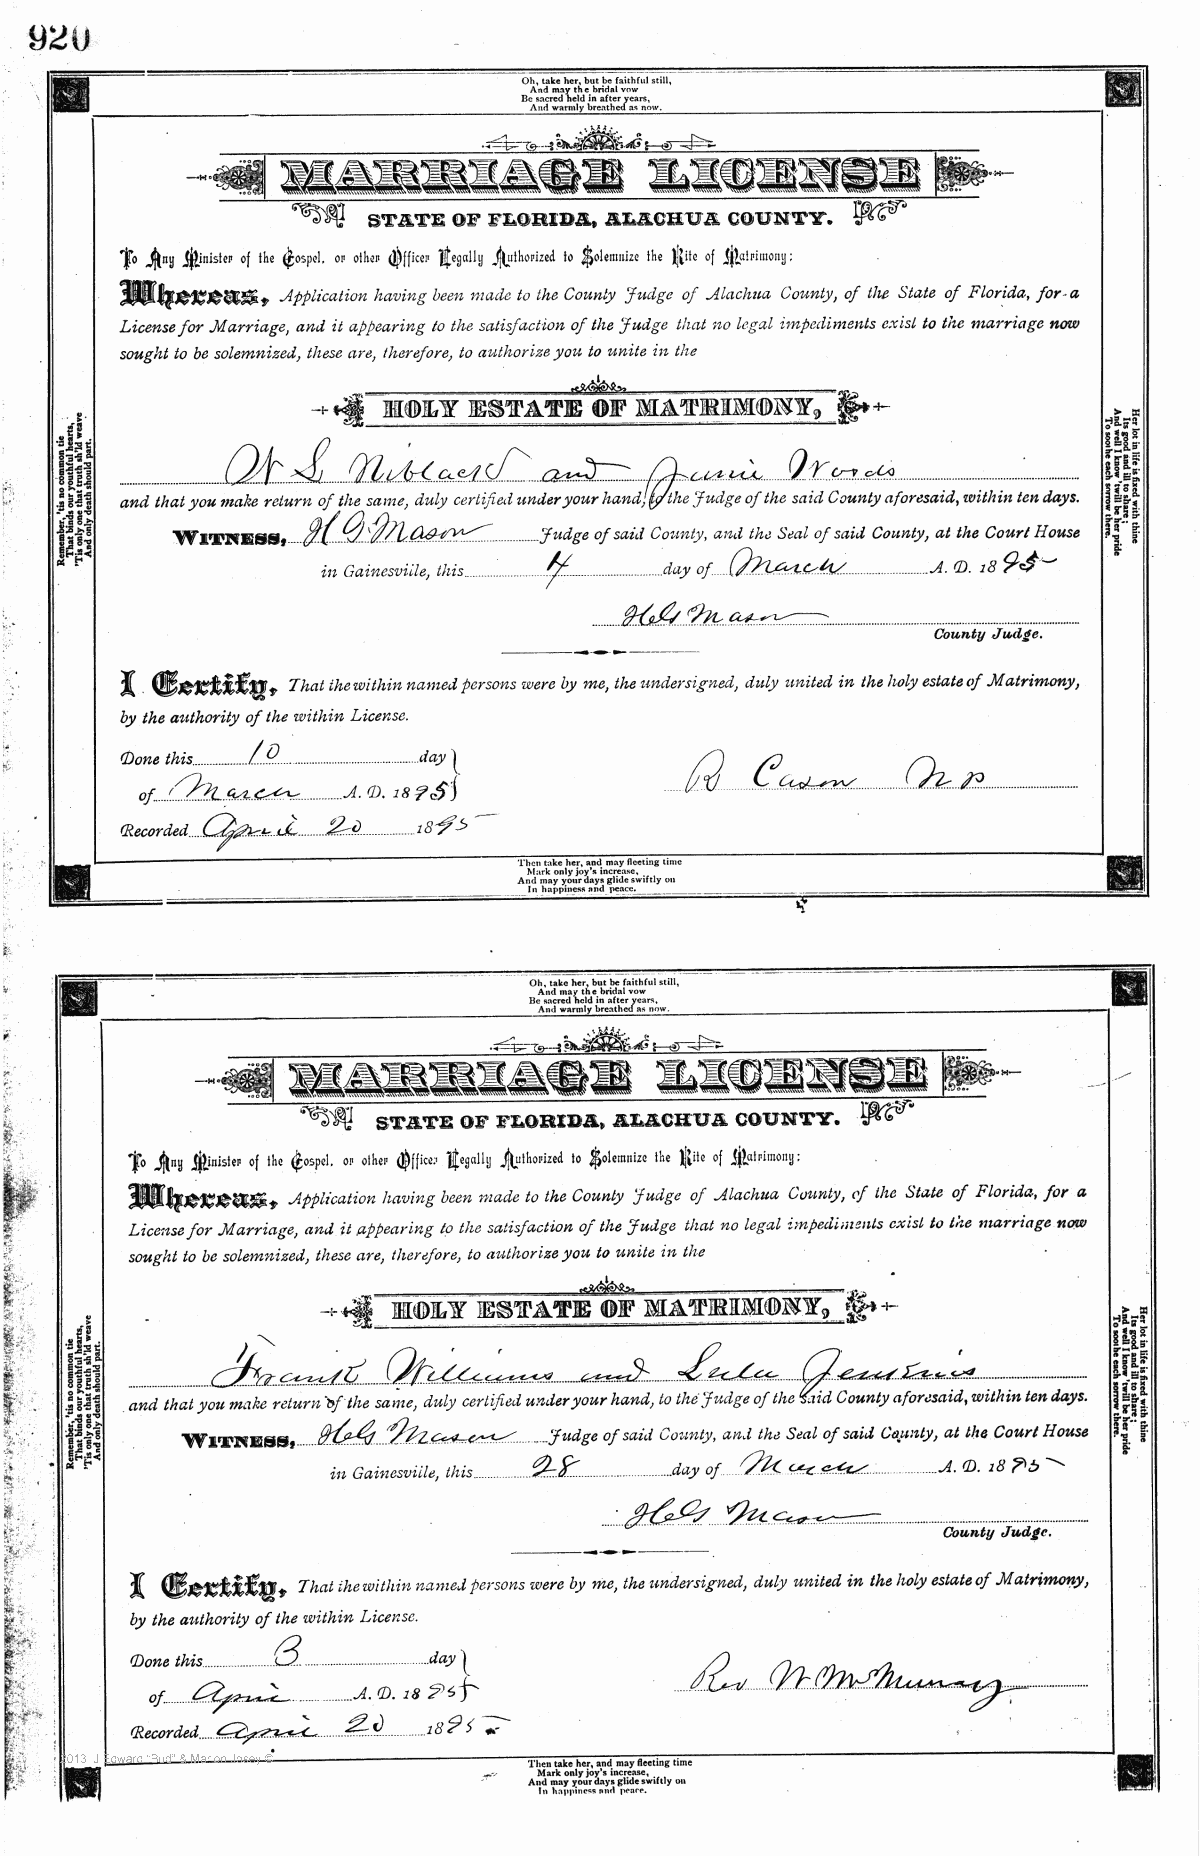 920
Oh, take her, but be faithful still,
And may the bridal vow
Be sacred held in after years,
And warmly breathed as now.
MARRIAGE LICENSE
STATE OF FLORIDA, ALACHUA COUNTY.
To Any Minister of the Gospel, or other Officer Legally Authorized to Solemnize the Rite of Matrimony:
Whereas, Application having been made to the County Judge of Alachua County, of the State of Florida, for a
License for Marriage, and it appearing to the satisfaction of the Judge that no legal impediments exist to the marriage now
sought to be solemnized, these are, therefore, to authorize you to unite in the
HOLY ESTATE OF MATRIMONY,
W S Niblack and Janie Woods
and that you make return of the same, duly certified under your hand, to the Judge of the said County aforesaid, within ten days.
WITNESS, H G Mason Judge of said County, and the Seal of said County, at the Court House
in Gainesville, this 4 day of March A. D. 1895
H G Mason
County Judge.
I Certify, That the within named persons were by me, the undersigned, duly united in the holy estate of Matrimony,
by the authority of the within License.
Done this 10 day
of March A. D. 1895
B Cason N P
Recorded April 20 1895
Remember, 'tis no common tie
That binds our youthful hearts,
'Tis only one that truth sh'ld weave
And only death should part.
Her lot in life is fixed with thine
Its good and ill to share;
And well I know 'twill be her pride
To soothe each sorrow there.
Then take her, and may fleeting time
Mark only joy's increase,
And may your days glide swiftly on
In happiness and peace.
Oh, take her, but be faithful still,
And may the bridal vow
Be sacred held in after years,
And warmly breathed as now.
MARRIAGE LICENSE
STATE OF FLORIDA, ALACHUA COUNTY.
To Any Minister of the Gospel, or other Officer Legally Authorized to Solemnize the Rite of Matrimony:
Whereas, Application having been made to the County Judge of Alachua County, of the State of Florida, for a
License for Marriage, and it appearing to the satisfaction of the Judge that no legal impediments exist to the marriage now
sought to be solemnized, these are, therefore, to authorize you to unite in the
HOLY ESTATE OF MATRIMONY,
Frank Williams and Lula Jenkins
and that you make return of the same, duly certified under your hand, to the Judge of the said County aforesaid, within ten days.
WITNESS, H G Mason Judge of said County, and the Seal of said County, at the Court House
in Gainesville, this 28 day of March A. D. 1895
H G Mason
County Judge.
I Certify, That the within named persons were by me, the undersigned, duly united in the holy estate of Matrimony,
by the authority of the within License.
Done this 3 day
of April A. D. 1895
Rev W McMurray
Recorded April 20 1895
Remember, 'tis no common tie
That binds our youthful hearts,
'Tis only one that truth sh'ld weave
And only death should part.
Her lot in life is fixed with thine
Its good and ill to share;
And well I know 'twill be her pride
To soothe each sorrow there.
2013 J Edward "Bud" & Marion Josey ©
Then take her, and may fleeting time
Mark only joy's increase,
And may your days glide swiftly on
In happiness and peace.